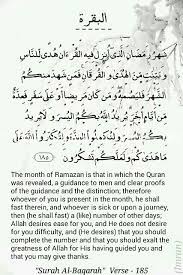 البقرة
شَهْرُ رَمَضَانَ الَّذِي أُنزِلَ فِيهِ الْقُرْآنُ هُدًى لِّلنَّاسِ
وَبَيِّنَاتٍ مِّنَ الْهُدَىٰ وَالْفُرْقَانِ فَمَن شَهِدَ مِنكُمُ
الشَّهْرَ فَلْيَصُمْهُ وَمَن كَانَ مَرِيضًا أَوْ عَلَىٰ سَفَرٍ فَعِدَّةٌ
مِّنْ أَيَّامٍ أُخَرَ يُرِيدُ اللَّهُ بِكُمُ الْيُسْرَ وَلَا يُرِيدُ
بِكُمُ الْعُسْرَ وَلِتُكْمِلُوا الْعِدَّةَ وَلِتُكَبِّرُوا اللَّهَ عَلَىٰ
مَا هَدَاكُمْ وَلَعَلَّكُمْ تَشْكُرُونَ ١٨٥
The month of Ramazan is that in which the Quran
was revealed, a guidance to men and clear proofs
of the guidance and the distinction; therefore
whoever of you is present in the month, he shall
fast therein, and whoever is sick or upon a journey,
then (he shall fast) a (like) number of other days;
Allah desires ease for you, and He does not desire
for you difficulty, and (He desires) that you should
complete the number and that you should exalt the
greatness of Allah for His having guided you and
that you may give thanks.
"Surah Al-Baqarah" Verse - 185
(imran)